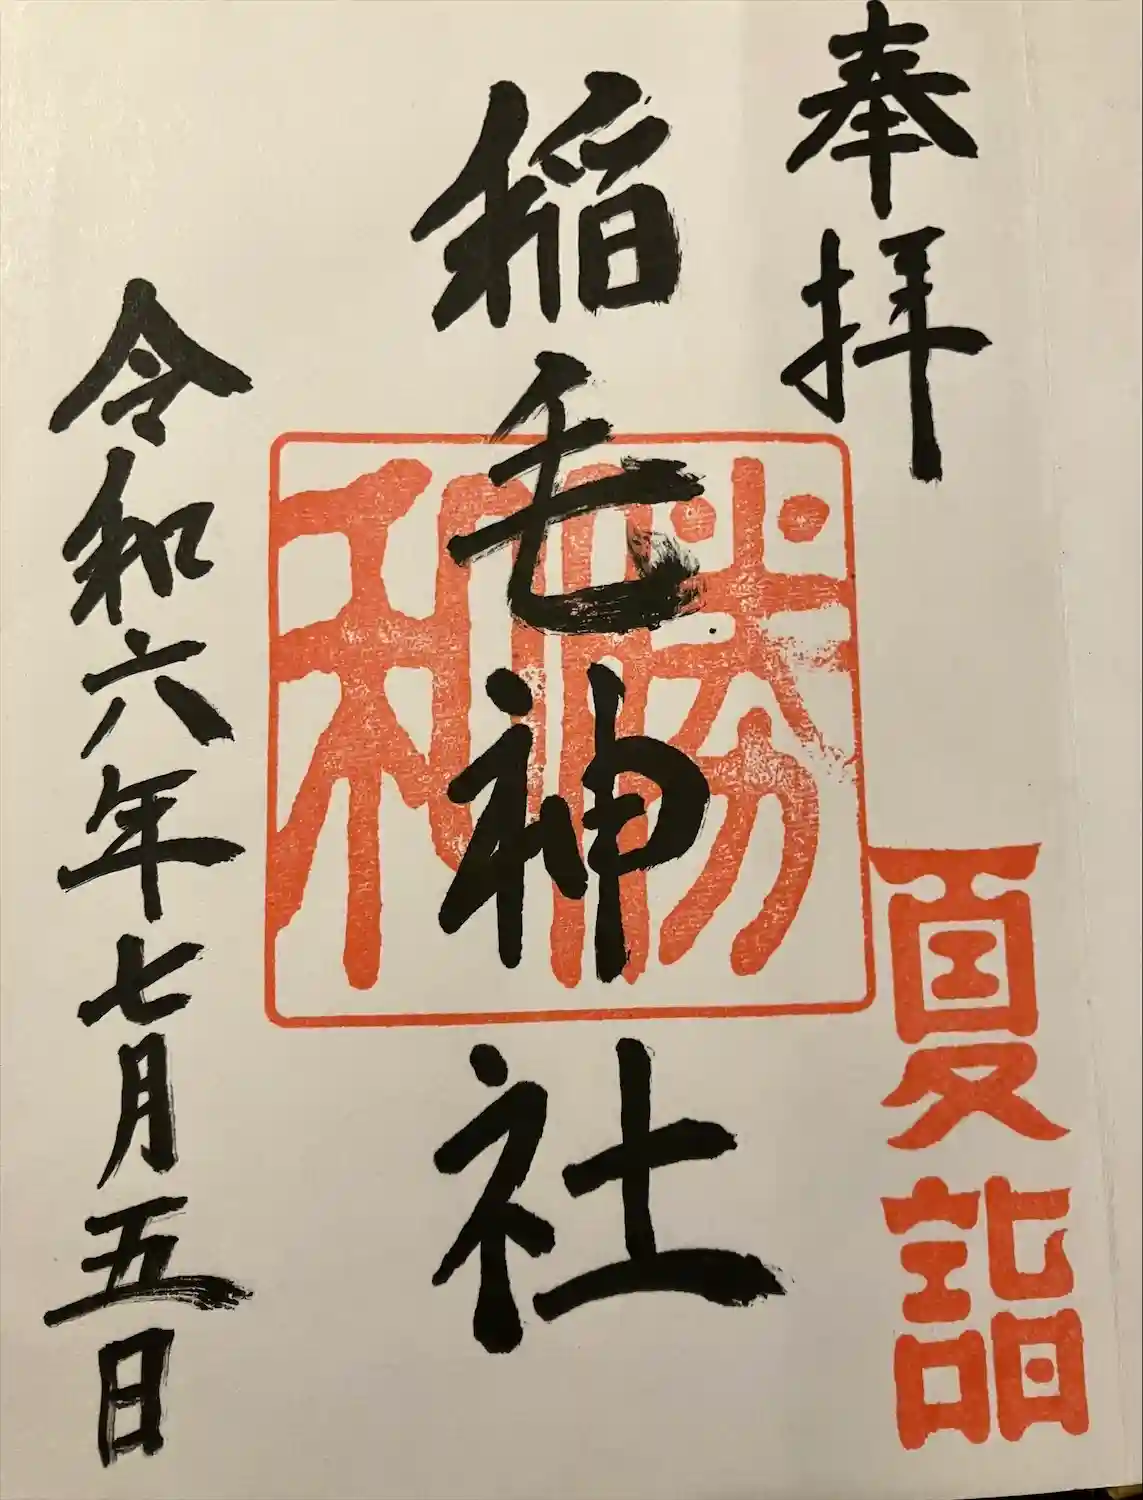 奉拝
夏詣
稲毛神社
勝和
令和六年七月五日